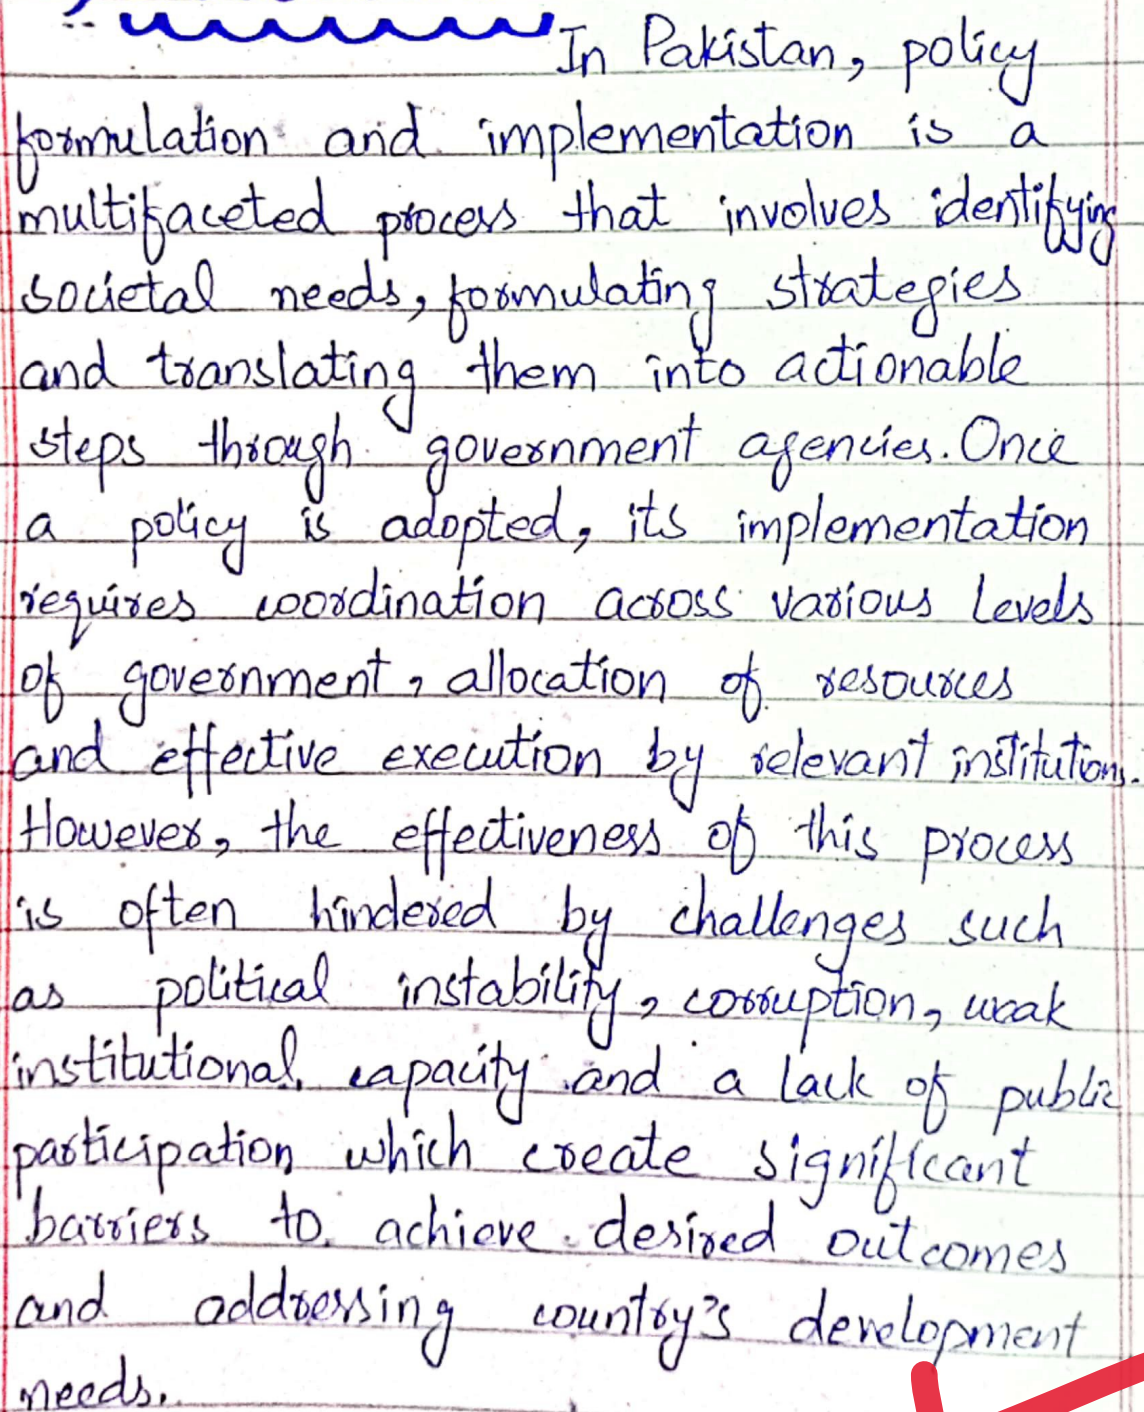 In Pakistan, policy
formulation and implementation is a
multifaceted process that involves identifying
societal needs, formulating strategies
and translating them into actionable
steps through government agencies. Once
a policy is adopted, its implementation
requires coordination across various levels
of government, allocation of resources
and effective execution by relevant institutions.
However, the effectiveness of this process
is often hindered by challenges such
as political instability, corruption, weak
institutional capacity and a lack of public
participation which create significant
barriers to achieve desired outcomes
and addressing country's development
needs.